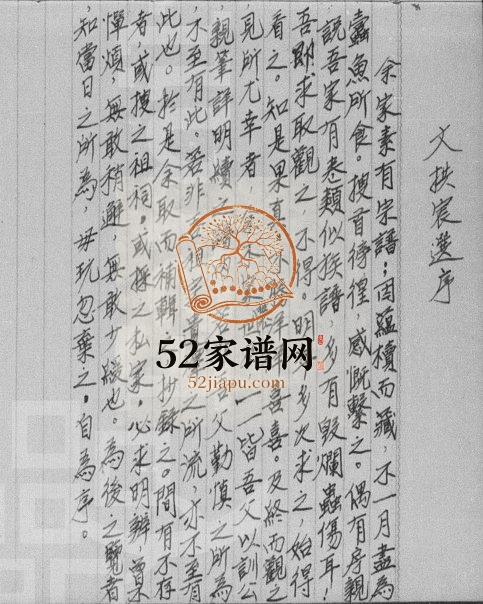 文拱宸選序
余家素有宗譜；因蘊櫝而藏，不一月盡為
蠹魚所食。搜首徬徨，感慨繫之。偶有房親
說吾家有卷類似族譜，多有毀爛蟲傷耳！
吾即求取觀之，不得。明年多次求之，始得
看之。知是果真 喜。及終而觀之
見所尤幸者 一一皆吾父以訓公
親筆詳明續之 父勤慎之所為
，不至有此。若非 之所流，亦不至有
此也。於是余取而補輯 抄錄之。間有不存
者，或搜之祖祠，或採之私家，必求明辨，莫
憚煩，無敢稍避，無敢少緩也。為後之覽者
，知當日之所為，毋玩忽棄之，自為序。
52家谱网
52jiapu.com